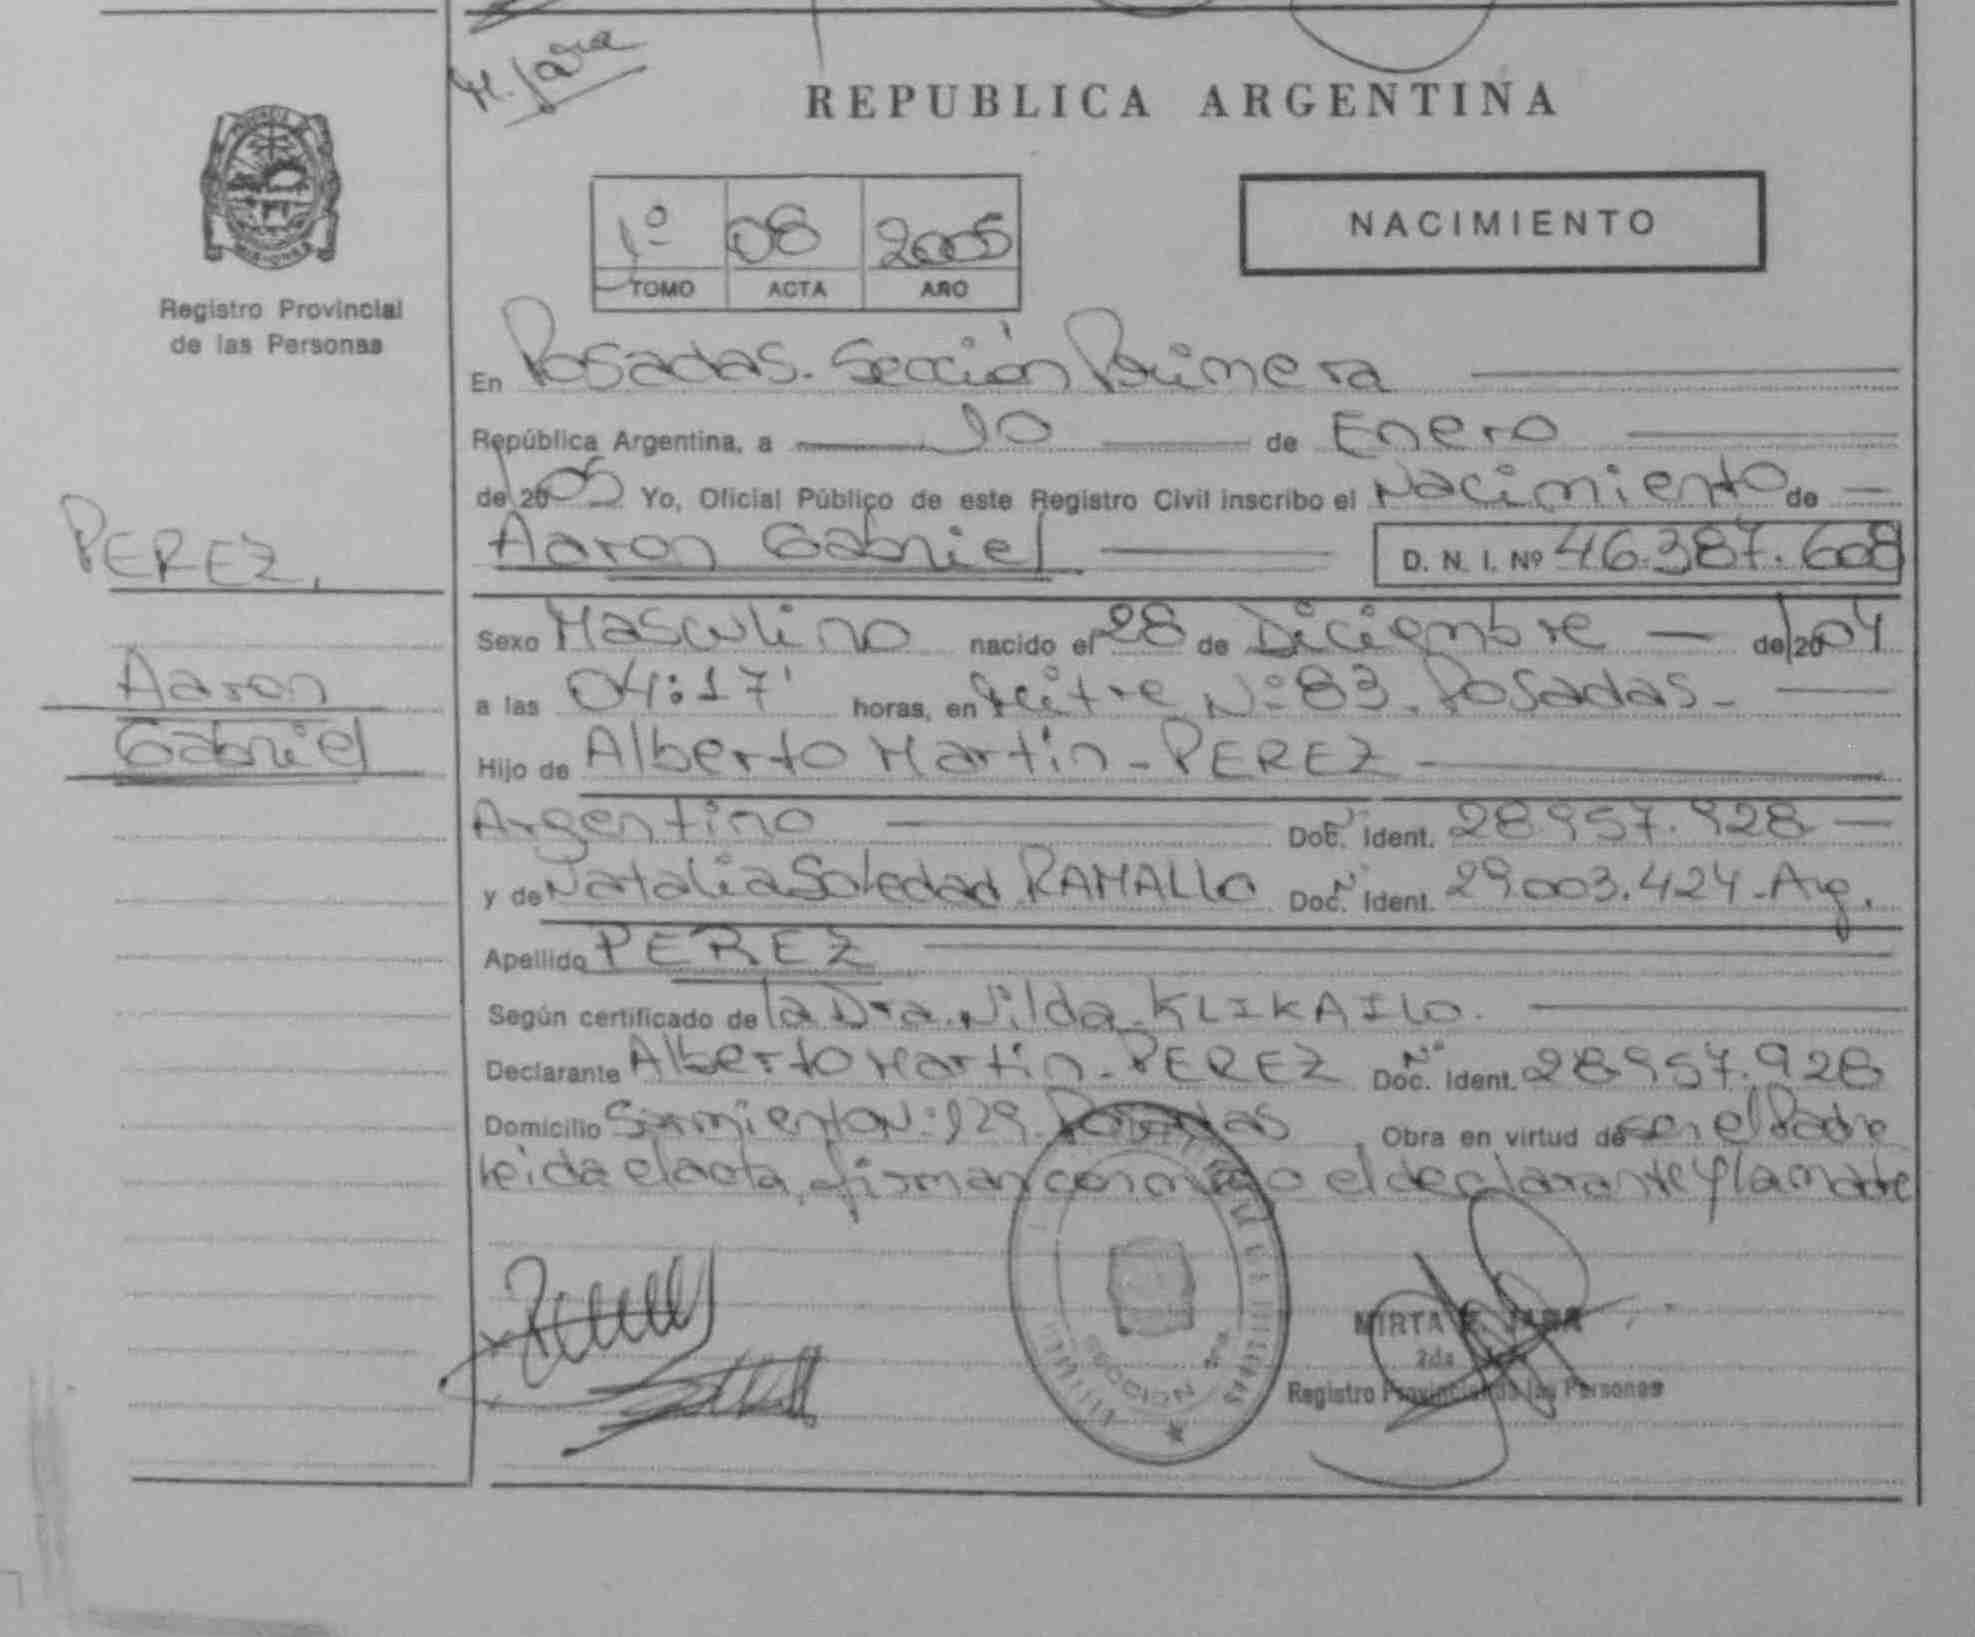 M. Jara
REPUBLICA ARGENTINA
NACIMIENTO
1º 08 2005
TOMO ACTA AÑO
Registro Provincial
de las Personas
En Posadas. Sección Primera
República Argentina, a 10 de Enero
de 2005 Yo, Oficial Público de este Registro Civil inscribo el Nacimiento de
Aaron Gabriel D. N. I. Nº 46.387.608
PEREZ,
Aaron
Gabriel
Sexo Masculino nacido el 28 de Diciembre de 2004
a las 04:17' horas, en Mitre Nº 83. Posadas.
Hijo de Alberto Martin - PEREZ
Argentino Doc. Ident. 28.957.928
y de Natalia Soledad RAMALLO Doc. Ident. 29.003.424 - Arg.
Apellido PEREZ
Según certificado de la Dra. Nilda KLIKAILO.
Declarante Alberto Martin - PEREZ Doc. Ident. 28957.928
Domicilio Sarmiento Nº 129. Posadas. Obra en virtud de ser el Padre
leida el acta, firman conmigo el declarante y la madre
SECCION 1ra
MIRTA E. JARA
2da
Registro Provincial de las Personas